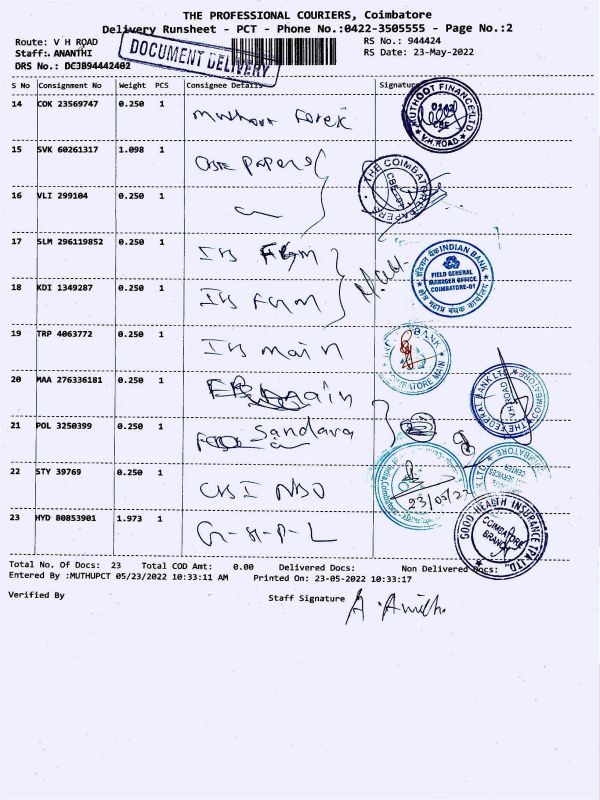 THE PROFESSIONAL COURIERS, Coimbatore
Delivery Runsheet - PCT - Phone No.:0422-3505555 - Page No.:2
Route: V H ROAD
RS No.: 944424
Staff: ANANTHI
RS Date: 23-May-2022
DRS No.: DCJ894442402
DOCUMENT DELIVERY
S No Consignment No Weight PCS Consignee Details Signature
14 COK 23569747 0.250 1 Muthoot Forex
MUTHOOT FINANCE LTD
0142
CBE
V.H ROAD
15 SVK 60261317 1.098 1 CBE papers
THE COIMBATORE PAPERS
CBE-01
16 VLI 299104 0.250 1
17 SLM 296119852 0.250 1 IB FGM
18 KDI 1349287 0.250 1 IB FGM
INDIAN BANK
FIELD GENERAL
MANAGER OFFICE
COIMBATORE-01
19 TRP 4063772 0.250 1 IB main
BANK
COIMBATORE MAIN
20 MAA 276336181 0.250 1
THE FEDERAL BANK LTD.
V.H ROAD
COIMBATORE
21 POL 3250399 0.250 1 Sandara
22 STY 39769 0.250 1 CBI NBO
23/05/22
23 HYD 80853901 1.973 1 G-H-P-L
GOOD HEALTH INSURANCE TPA LTD.
COIMBATORE
BRANCH
Total No. Of Docs: 23 Total COD Amt: 0.00 Delivered Docs: Non Delivered Docs:
Entered By :MUTHUPCT 05/23/2022 10:33:11 AM Printed On: 23-05-2022 10:33:17
Verified By Staff Signature